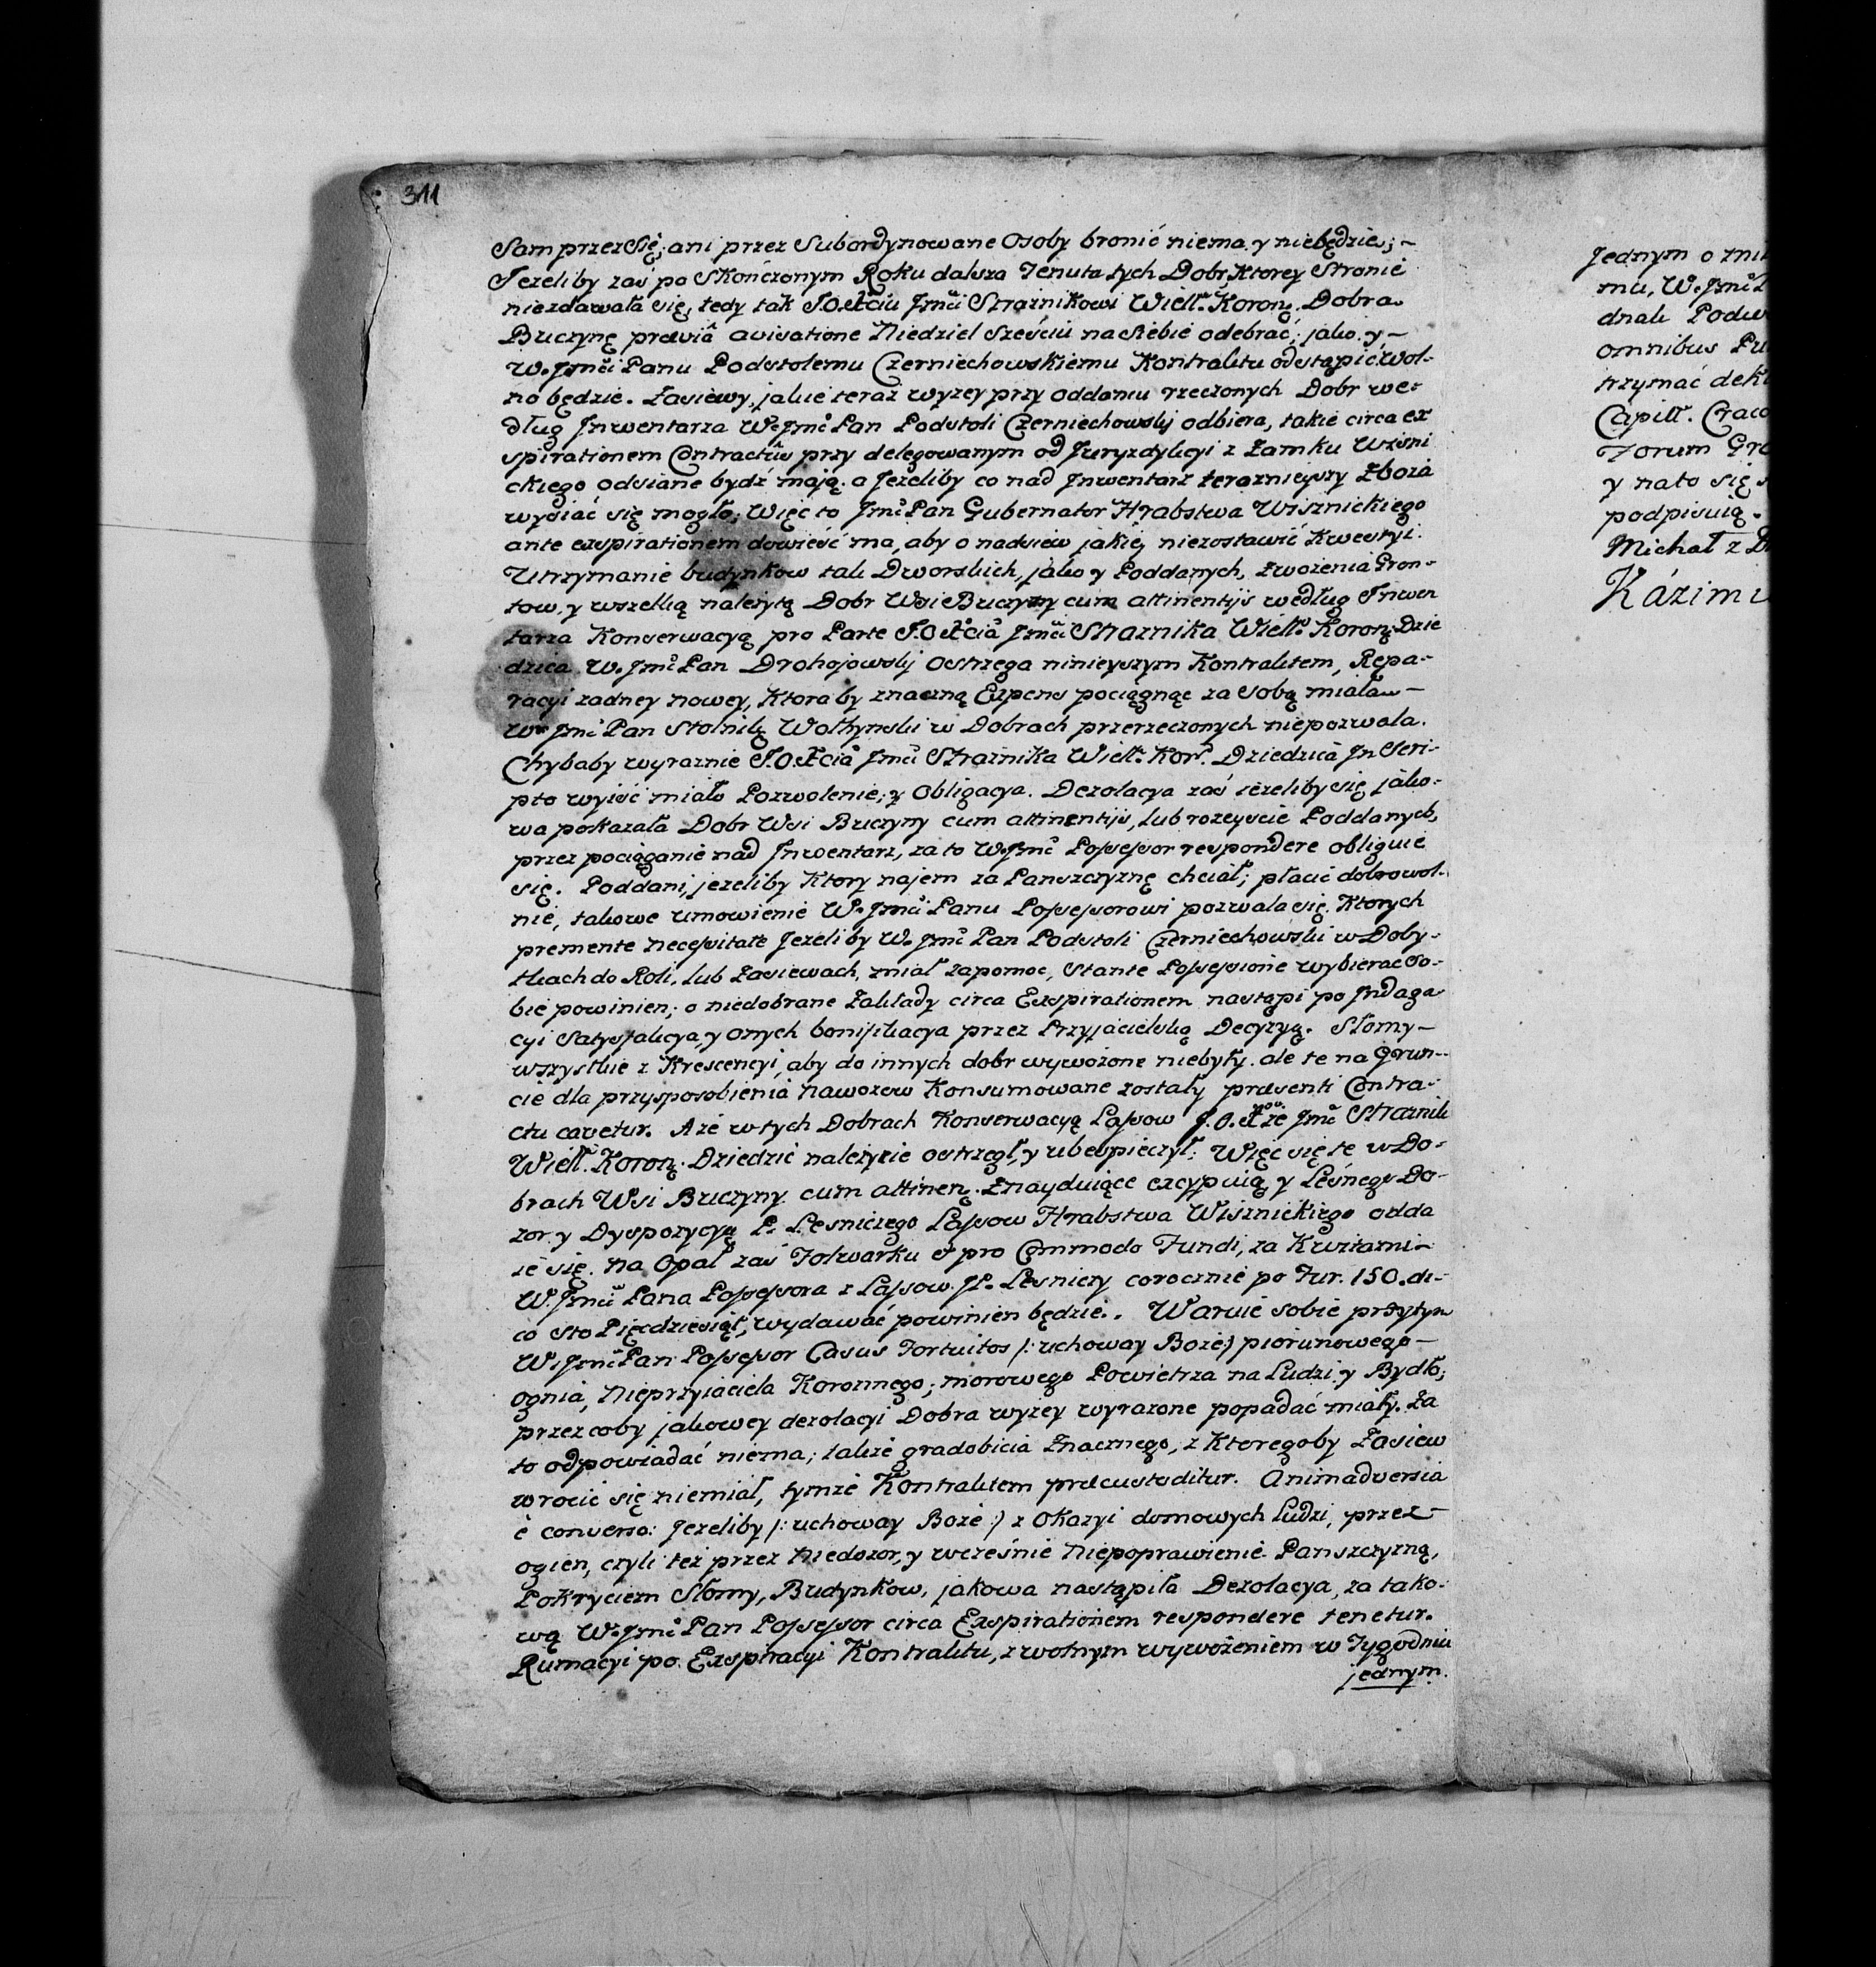 311
Sam przez Się, ani przez Subordynowane Osoby bronić niema, y niebędzie; –
Jezeliby zaś po Skończonym Roku dalsza Tenuta tych Dobr, Ktorey Stronie
niezdawała się, tedy tak J.O.Xciu Jmći Strażnikowi Wiell. Koronę. Dobra
Buczynę prævia avisatione Niedziel Sześciu na Siebie odebrać; jako. y –
W. Jmći Panu Podstolemu Czerniechowskiemu Kontraktu odstąpić wol-
no będzie. Zasiewy, jakie teraz wyzey przy oddaniu rzeczonych Dobr we-
dług Jnwentarza W. Jmć Pan Podstoli Czerniechowski odbiera, takie circa ex
spirationem Contractûs przy delegowanym od Juryzdykcyi z Zamku Wisni
ckiego odsiane bydź mają. a Jeżeliby co nad Jnwentarz terazniejszy Zboża
wysiać się mogło; Więc to Jmć Pan Gubernator Hrabstwa Wisznickiego
ante exspirationem dowieść ma, aby o nadsiew jakiej niezostawić Kwestyi.
Utrzymanie budynkow tak Dworskich, jako y Poddanych, Zwożenia Gron-
tow, y wszelką należytą Dobr Wsi Buczyny cum attinentijs według Jnwen
tarza Konserwacyą pro Parte J.O.Xcia Jmći Strażnika Wiell. Koronę. Dzie
dzica W. Jmć Pan Drohojowskij ostrzega ninieyszym Kontraktem, Repa-
racyi zadney nowey, Ktora by znaczną Expens pociągnąć za Sobą miała –
W. Jmć Pan Stolnik Wołhynski w Dobrach przerzeczonych niepozwala.
Chybaby wyraznie J.O.Xcia Jmći Strażnika Wiell. Kor. Dziedzica Jn Scri-
pto wyiść miało Pozwolenie, y Obligacya. Dezolacya zaś jeżeliby się jako-
wa pokazała Dobr Wsi Buczyny cum attinentijs, lub rozeyście Poddanych,
przez pociąganie nad Jnwentarz, za to W. Jmć Possessor respondere obliguie
się. Poddani, jezeliby Ktory najem za Panszczyznę chciał; płacić dobrowol-
nie, takowe umowienie W. Jmći Panu Possessorowi pozwala się. Ktorych
premente necessitate Jezeliby W. Jmć Pan Podstoli Czerniechowski w Doby-
tkach do Roli, lub Zasiewach, miał zapomoc, Stante Possessione wybierać So-
bie powinien; o niedobrane Zakłady circa Exspirationem nastąpi po Jndaga
cyi Satysfakcya, y onych bonifikacya przez Przyjacielską Decyzyą. Słomy –
wszystkie z Krescencyi, aby do innych dobr wywożone niebyły. ale te na Grun-
cie dla przysposobienia nawozow Konsumowane zostały præsenti Contra-
ctu cavetur. A że w tych Dobrach Konserwacyą Lassow J.O.Xże Jmć Strażnik
Wiell. Koronę. Dziedzic należycie ostrzegł, y ubespieczył: Więc się te w Do-
brach Wsi Buczyny. cum attinen. Znayduiące excypuią, y Leśnego Do-
zor. y Dyspozycyą P. Lesniczego Lassow Hrabstwa Wisznickiego odda
ie się. na Opał zaś Folwarku et pro Commodo Fundi, za Kwitami –
W. Jmći Pana Possessora z Lassow. JP. Lesniczy corocznie po Fur. 150. di-
co Sto Pięćdziesiąt, wydawać powinien będzie. Waruie sobie przytym
W. Jmć Pan Possessor Casus Fortuitos /: uchoway Boże:/ piorunowego –
Ognia, Nieprzyiaciela Koronnego; morowego Powietrza na Ludzi y Bydło;
przez coby jakowey dezolacyi Dobra wyzey wyrażone popadać miały. Za
to odpowiadać niema; także gradobicia Znacznego, z Ktoregoby Zasiew
wrocić się niemiał, tymże Kontraktem præcustoditur. Animadversia
è converso: Jezeliby /: uchoway Boże :/ z Okazyi domowych Ludzi, przez –
ogien, czyli też przez Niedozor, y wcześnie Niepoprawienie Panszczyzną,
Pokryciem Słomy, Budynkow, jakowa nastąpiła Dezolacya, za tako-
wą W. Jmć Pan Possessor circa Exspirationem respondere tenetur.
Rumacyi po Exspiracyi Kontraktu, z wolnym wywożeniem w Tygodniu
jednym.
Jednym o
mu, W. Jmć
dnak
omnibus
trzymać
Capitt.
Forum
y nato się
podpisuią.
Michał z
Kázimi